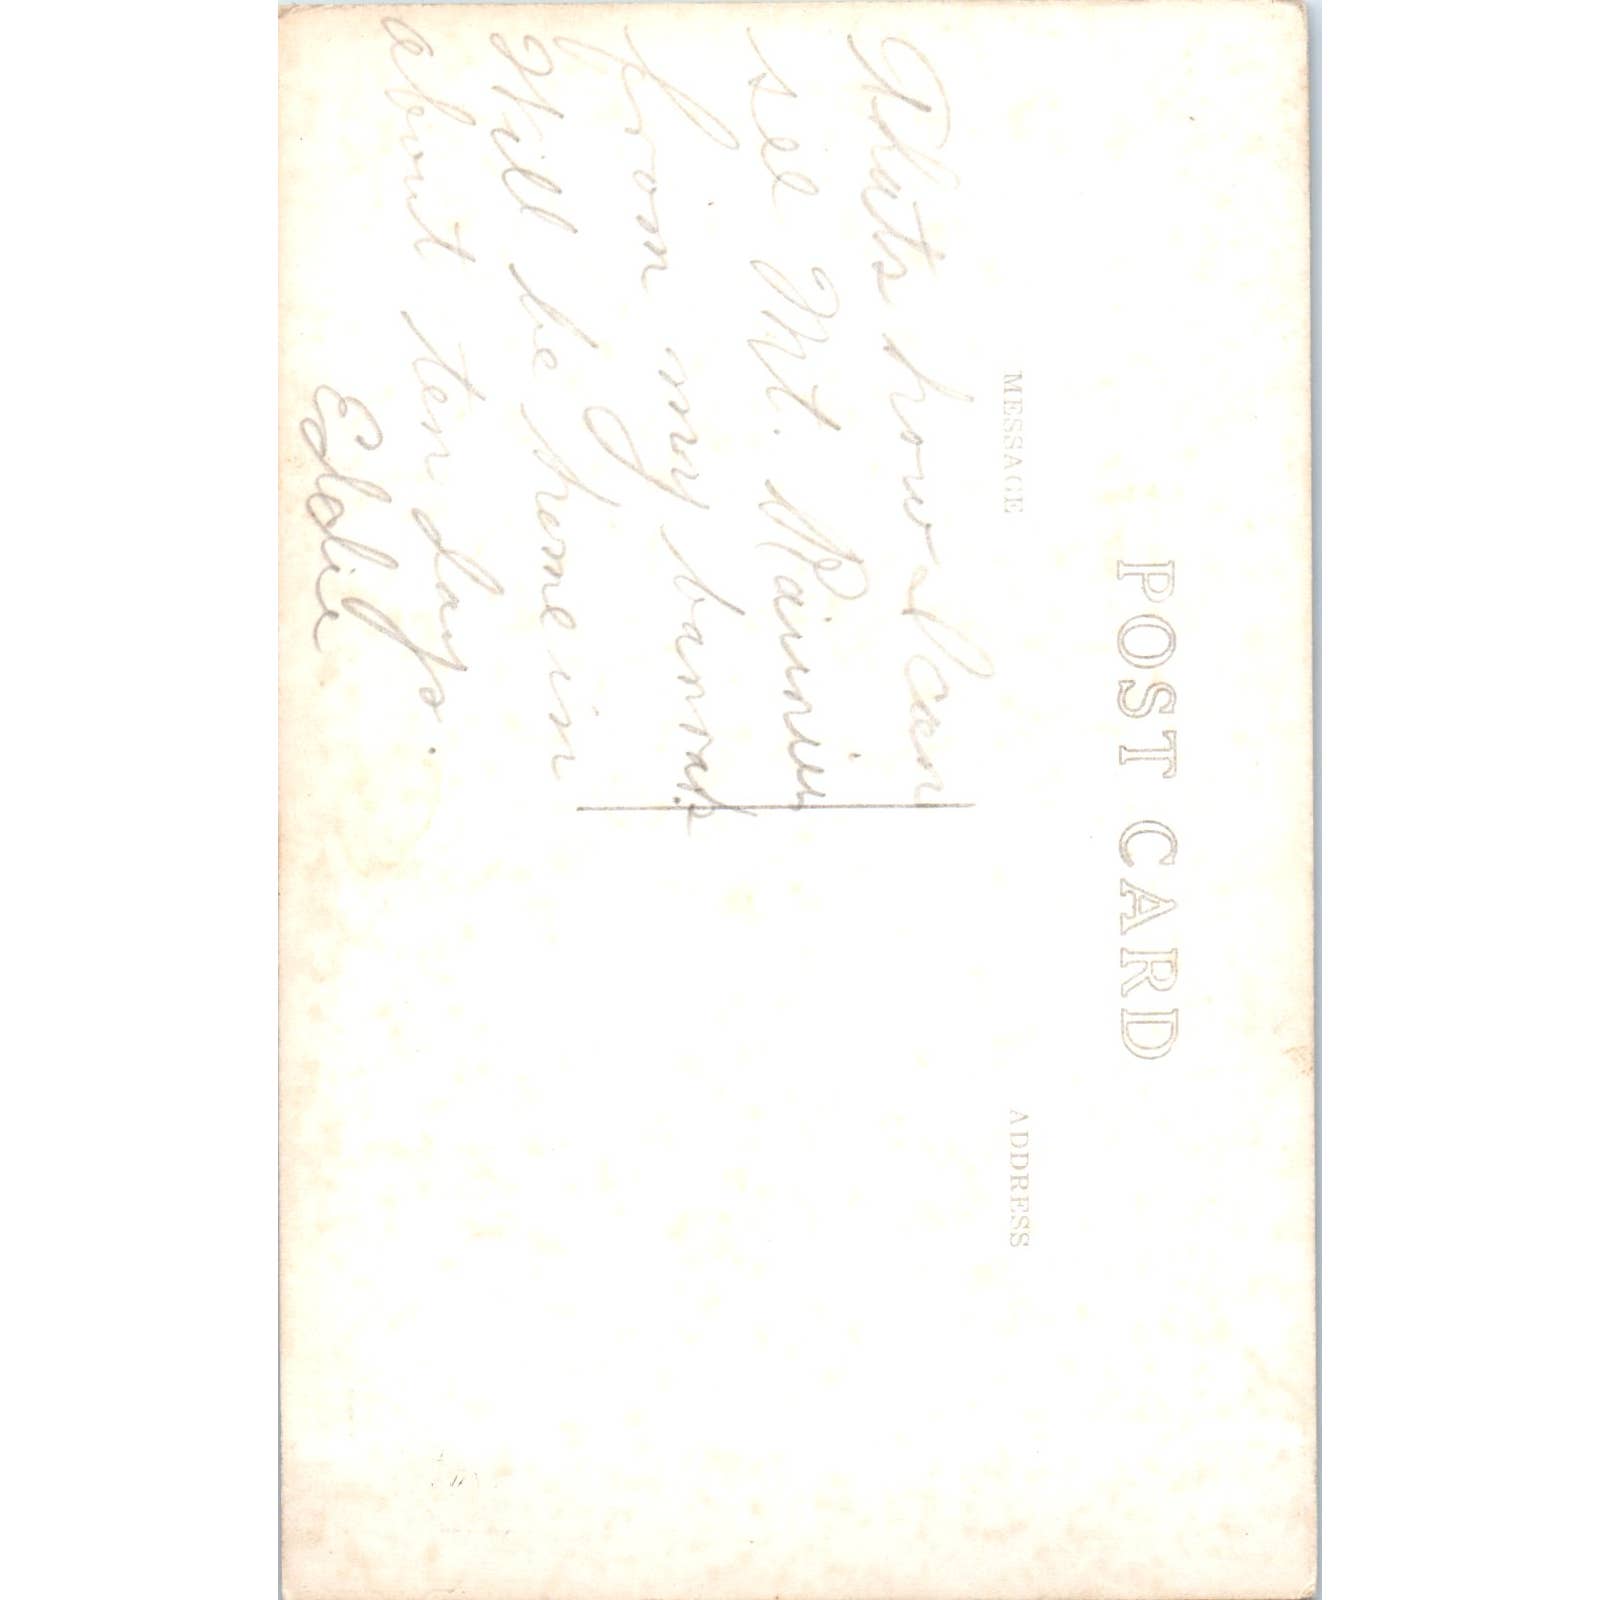 POST CARD
MESSAGE
ADDRESS
Thats how I can
see Mt. Rainier
from my barrack.
Will be home in
about ten days.
Eddie